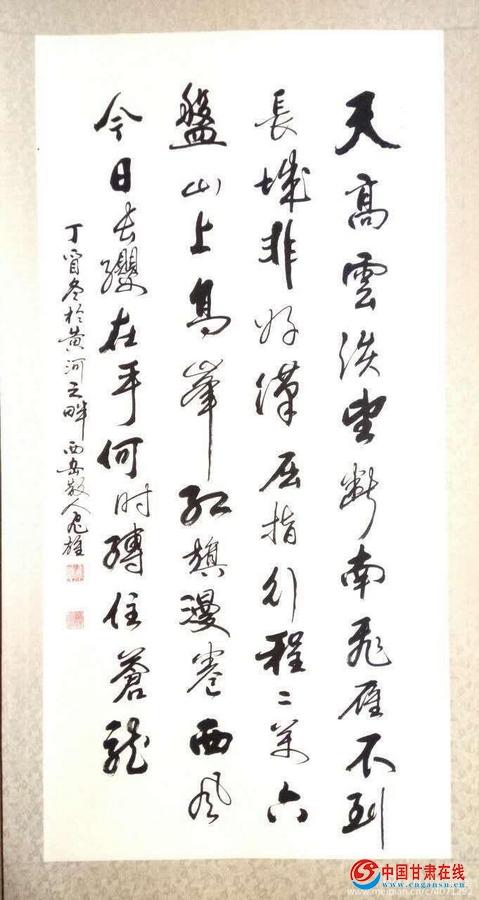 天高雲淡望斷南飛雁不到
長城非好漢屈指行程二萬六
盤山上高峰红旗漫卷西風
今日长纓在手何时縛住蒼龍
丁酉冬於黄河之畔 西岳散人雄
中国甘肃在线
www.cngansu.cn